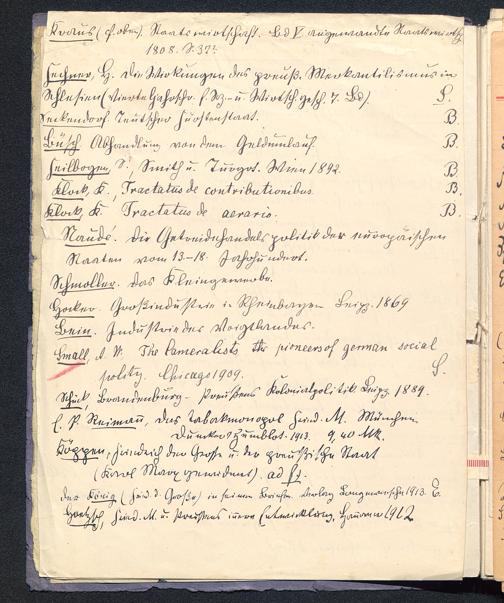 Kraus (s. oben) Staatswirtschaft. Bd V angewandte Staatswirtsch.
1808. S. 37?
Fechner, H. Die Wirkungen des preuß. Merkantilismus in
Schlesien (Vierteljahrschr. f. Soz.- u. Wirtsch. gesch. 7. Bd) S.
Seckendorf Teutscher Fürstenstaat. B.
Büsch Abhandlung von dem Geldumlauf. B.
Feilbogen, S., Smith u. Turgot. Wien 1892. B
Klock, K., Tractatus de contributionibus. B.
Klock, K. Tractatus de aerario. B.
Naudé. Die Getreidehandelspolitik der europäischen
Staaten vom 13-18. Jahrhundert.
Schmoller. Das Kleingewerbe.
Hocker. Großindustrie in Rheinbayern Leipz. 1869
Bein. Industrie des Voigtlandes.
Small, A. W. The Cameralists the pioneers of german social
polity. Chicago 1909. S.
Schück, Brandenburg-Preußens Kolonialpolitik Leipz. 1889.
E. P. Reimann, das Tabakmonopol Fried. d. M. München.
Duncker & Humblot. 1913. 9,40 Mk.
Köppen, Friedrich der Große u. der preußische Staat
(Karl Marx gewidmet).
Der König (Fried. d. Große) in seinen Briefen. Verlag Langewiesche 1913.
Hoetzsch, Fried. M. u. Preußens innere Entwicklung, Hannover 1912